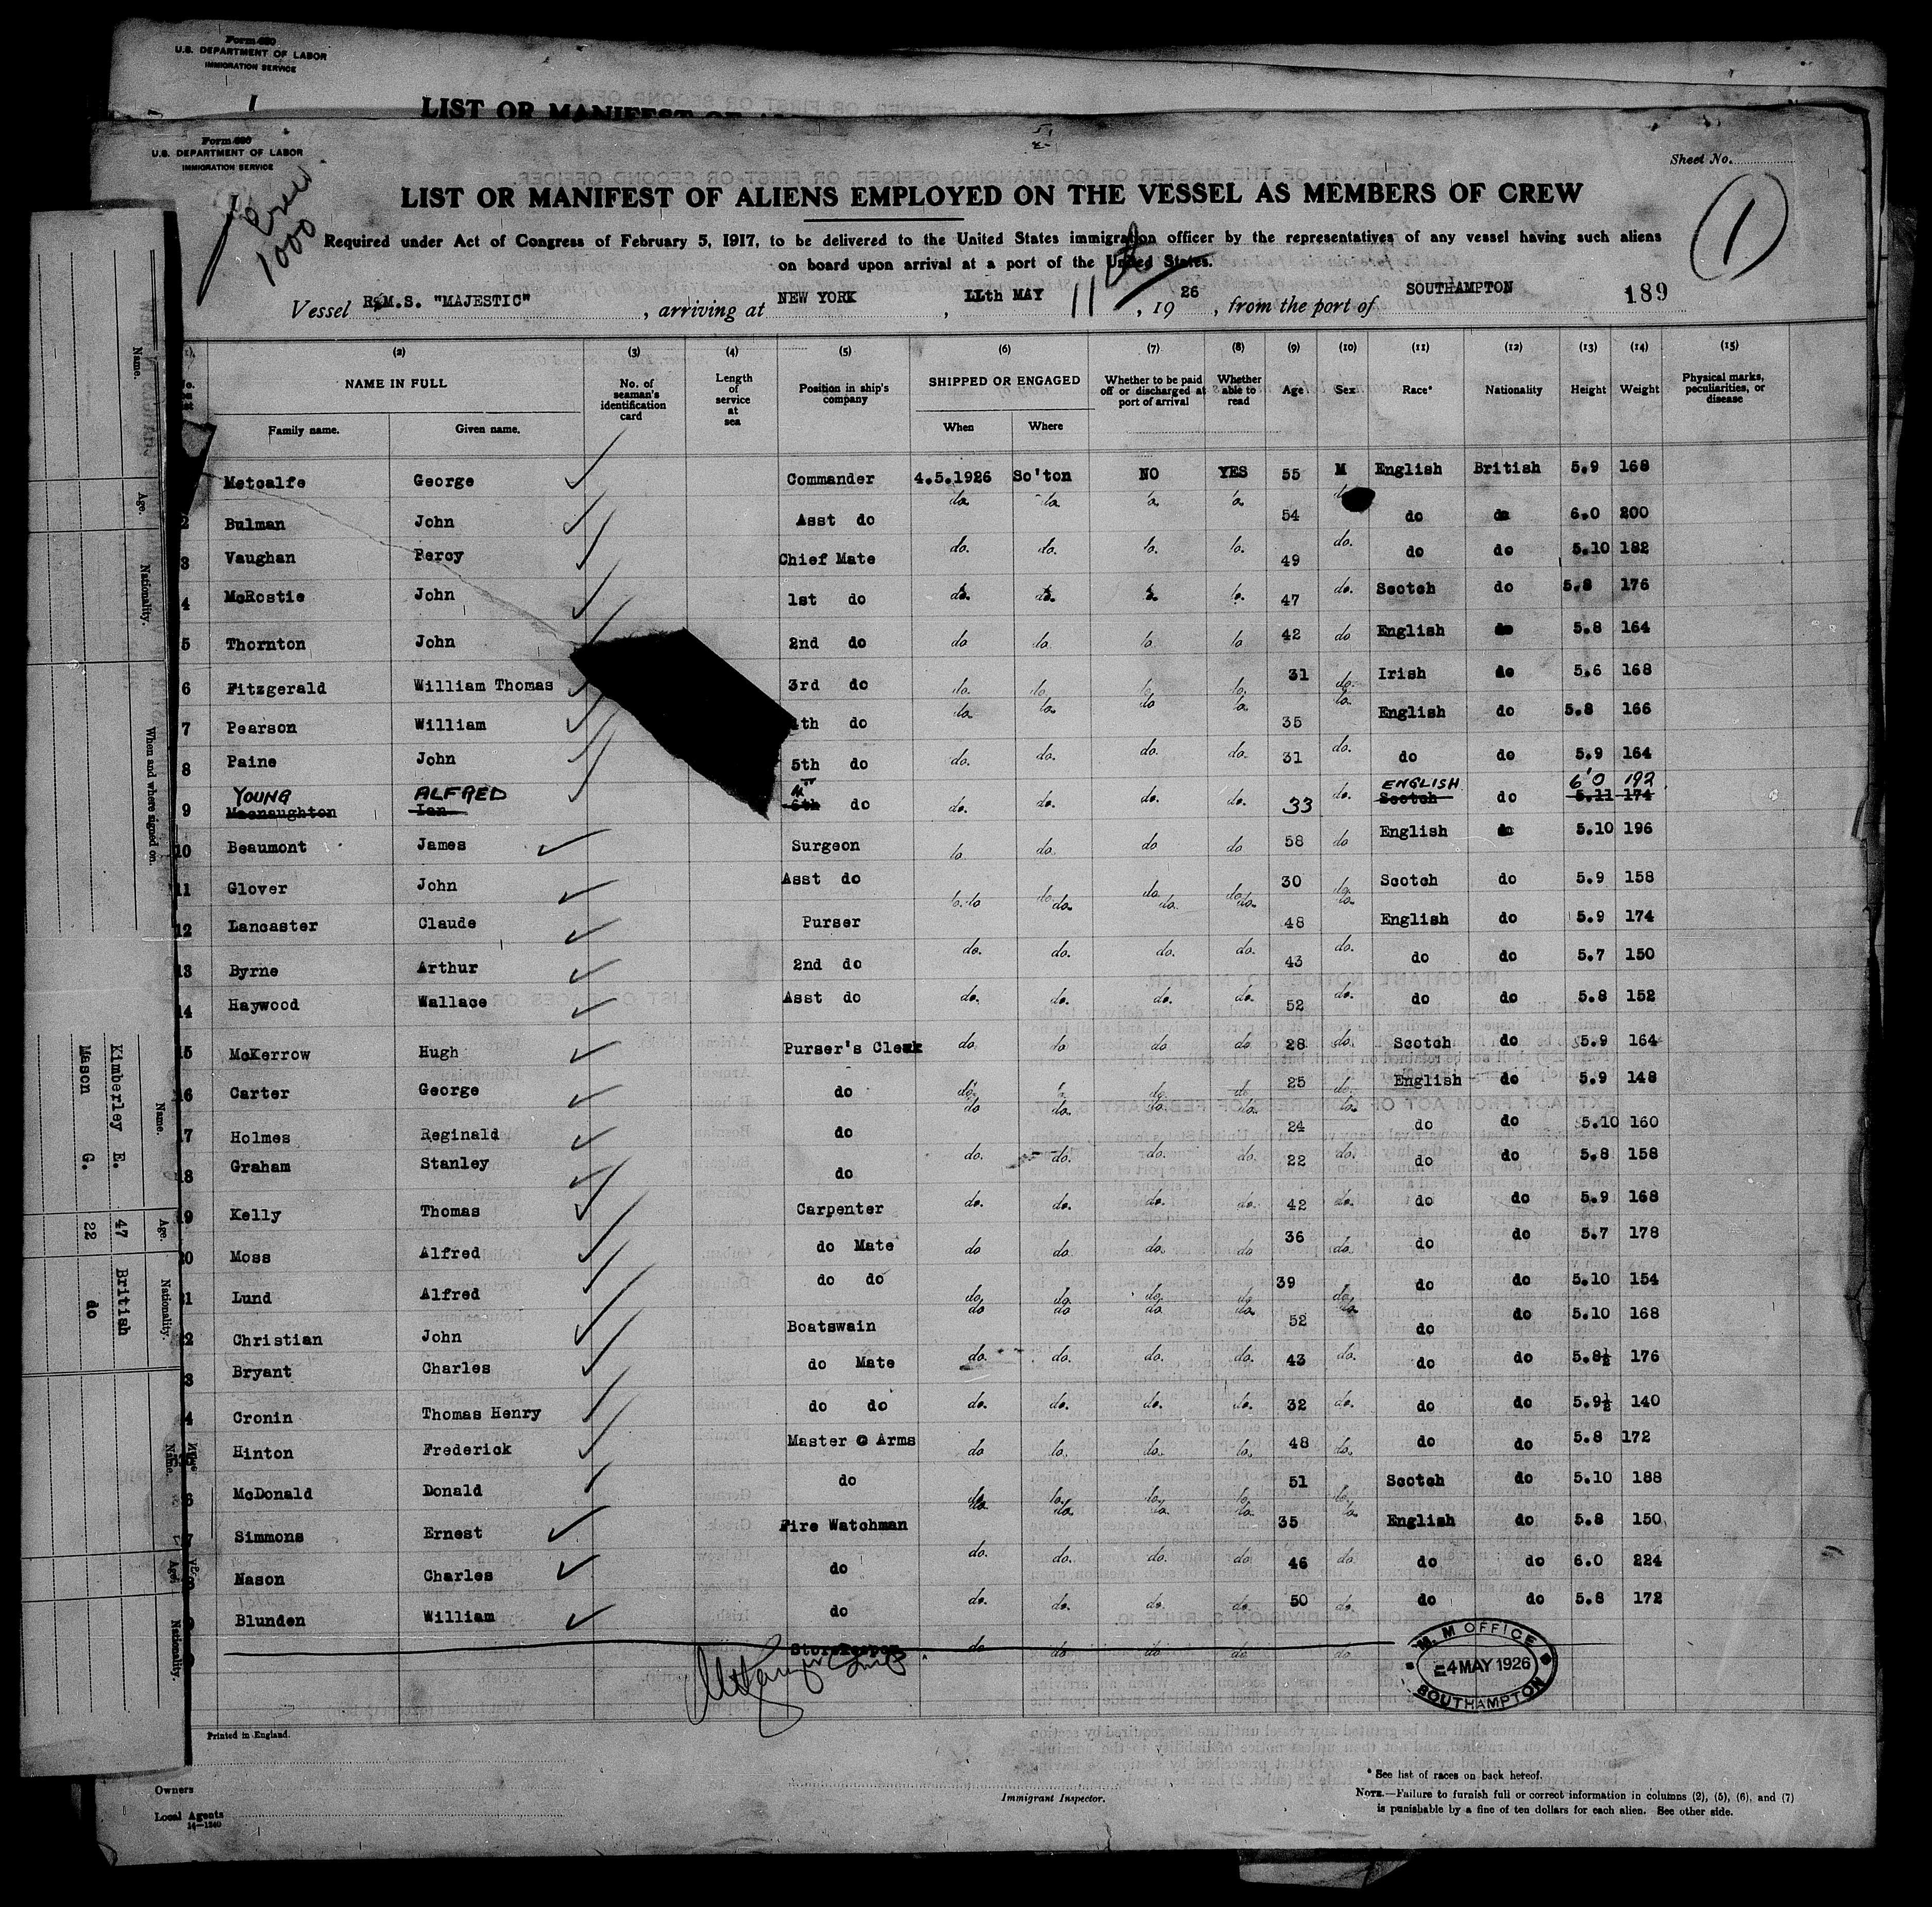 Form 680
U.S. DEPARTMENT OF LABOR
IMMIGRATION SERVICE
LIST OR MANIFEST OF
Form 680
U.S. DEPARTMENT OF LABOR
IMMIGRATION SERVICE
Crew
1000
Sheet No.
1
LIST OR MANIFEST OF ALIENS EMPLOYED ON THE VESSEL AS MEMBERS OF CREW
Required under Act of Congress of February 5, 1917, to be delivered to the United States immigration officer by the representatives of any vessel having such aliens
on board upon arrival at a port of the United States.
Vessel R.M.S. "MAJESTIC", arriving at NEW YORK, 11th MAY 11, 1926, from the port of SOUTHAMPTON 189
(1). (2) (3) (4) (5) (6) (7) (8) (9) (10) (11) (12) (13) (14) (15)
NAME IN FULL No. of seaman's identification card Length of service at sea Position in ship's company SHIPPED OR ENGAGED Whether to be paid off or discharged at port of arrival Whether able to read Age Sex Race* Nationality Height Weight Physical marks, peculiarities, or disease
Family name. Given name. When Where
Metcalfe George Commander 4.5.1926 So'ton NO YES 55 M English British 5.9 168
2 Bulman John Asst do do do do do 54 do do do 6.0 200
3 Vaughan Percy Chief Mate do. do. do. do. 49 do. do do 5.10 182
4 McRostie John 1st do do. do. do. do. 47 do. Scotch do 5.8 176
5 Thornton John 2nd do do do do do 42 do English do 5.8 164
6 Fitzgerald William Thomas 3rd do do. do. do. do. 31 do. Irish do 5.6 168
7 Pearson William 4th do do do do do 35 do English do 5.8 166
8 Paine John 5th do do. do. do. do. 31 do. do do 5.9 164
YOUNG ALFRED ENGLISH 6'0 192
9 Macnaughton Ian 6th do do. do. do. do. 33 do. Scotch do 5.11 174
10 Beaumont James Surgeon do. do. do do 58 do English do 5.10 196
11 Glover John Asst do do. do. do. do. 30 do. Scotch do 5.9 158
12 Lancaster Claude Purser do do. do. do. 48 do. English do 5.9 174
13 Byrne Arthur 2nd do do. do. do. do. 43 do. do do 5.7 150
14 Haywood Wallace Asst do do. do. do. do. 52 do. do do 5.8 152
15 McKerrow Hugh Purser's Clerk do. do do do 28 do. Scotch do 5.9 164
16 Carter George do do. do. do. do 25 do. English do 5.9 148
17 Holmes Reginald do do do. do. do. 24 do. do do 5.10 160
18 Graham Stanley do do. do. do. do. 22 do. do do 5.8 158
19 Kelly Thomas Carpenter do. do. do. do. 42 do. do do 5.9 168
20 Moss Alfred do Mate do do. do. do 36 do. do do 5.7 178
21 Lund Alfred do do do. do. do. do 39 do. do do 5.10 154
22 Christian John Boatswain do do do do. 52 do. do do 5.10 168
3 Bryant Charles do Mate do. do. do. do. 43 do. do do 5.8½ 176
4 Cronin Thomas Henry do do do. do. do. do. 32 do. do do 5.9½ 140
Hinton Frederick Master @ Arms do do. do. do. 48 do. do do 5.8 172
6 McDonald Donald do do. do. do. do. 51 do. Scotch do 5.10 188
7 Simmons Ernest Fire Watchman do. do. do. do. 35 do. English do 5.8 150
Nason Charles do do. do. do. do 46 do. do do 6.0 224
Blunden William do do. do. do. do. 50 do. do do 5.8 172
Storekeeper do do do do do
M. M OFFICE
4 MAY 1926
SOUTHAMPTON
Printed in England.
Owners
Local Agents
14—1240
Immigrant Inspector.
* See list of races on back hereof.
NOTE.—Failure to furnish full or correct information in columns (2), (5), (6), and (7)
is punishable by a fine of ten dollars for each alien. See other side.
Name. Age. Nationality. When and where signed on.
Name. Age. Nationality.
Kimberley E. 47 British
Mason G. 22 do
Name. Age. Nationality.